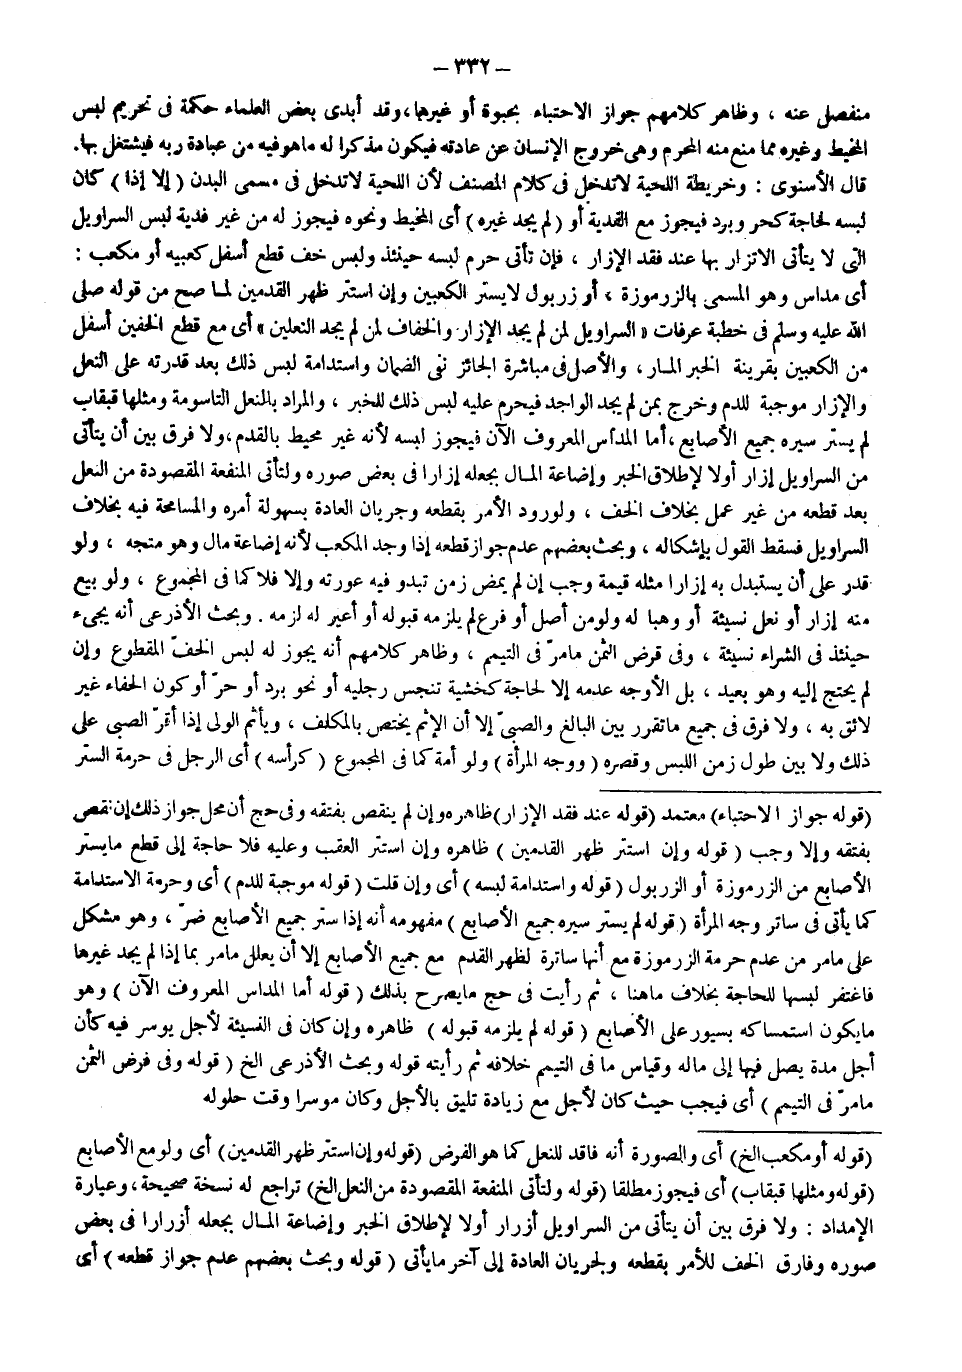 – ٣٣٢ –
منفصل عنه ، وظاهر كلامهم جواز الاحتباء بحبوة أو غيرها،وقد أبدى بعض العلماء حكمة فى تحريم لبس
المخيط وغيره مما منع منه المحرم وهى خروج الإنسان عن عادته فيكون مذكرا له ماهوفيه من عبادة ربه فيشتغل بها.
قال الأسنوى : وخريطة اللحية لاتدخل فى كلام المصنف لأن اللحية لاتدخل فى مسمى البدن ( إلا إذا ) كان
لبسه لحاجة كحر وبرد فيجوز مع الفدية أو ( لم يجد غيره ) أى المخيط ونحوه فيجوز له من غير فدية لبس السراويل
التى لا يتأتى الاتزار بها عند فقد الإزار ، فإن تأتى حرم لبسه حينئذ ولبس خف قطع أسفل كعبيه أو مكعب :
أى مداس وهو المسمى بالزرموزة ، أو زربول لايستر الكعبين وإن استتر ظهر القدمين لما صح من قوله صلى
الله عليه وسلم فى خطبة عرفات « السراويل لمن لم يجد الإزار والخفاف لمن لم يجد النعلين » أى مع قطع الخفين أسفل
من الكعبين بقرينة الخبر المار ، والأصل فى مباشرة الجائز نفى الضمان واستدامة لبس ذلك بعد قدرته على النعل
والإزار موجبة للدم وخرج بمن لم يجد الواجد فيحرم عليه لبس ذلك للخبر ، والمراد بالنعل التاسومة ومثلها قبقاب
لم يستر سيره جميع الأصابع ،أما المداس المعروف الآن فيجوز لبسه لأنه غير محيط بالقدم،ولا فرق بين أن يتأتى
من السراويل إزار أولا لإطلاق الخبر وإضاعة المال بجعله إزارا فى بعض صوره ولتأتى المنفعة المقصودة من النعل
بعد قطعه من غير عمل بخلاف الخف ، ولورود الأمر بقطعه وجريان العادة بسهولة أمره والمسامحة فيه بخلاف
السراويل فسقط القول بإشكاله ، وبحث بعضهم عدم جواز قطعه إذا وجد المكعب لأنه إضاعة مال وهو متجه ، ولو
قدر على أن يستبدل به إزارا مثله قيمة وجب إن لم يمض زمن تبدو فيه عورته وإلا فلا كما فى المجموع ، ولو بيع
منه إزار أو نعل نسيئة أو وهبا له ولومن أصل أو فرع لم يلزمه قبوله أو أعير له لزمه . وبحث الأذرعى أنه يجىء
حينئذ فى الشراء نسيئة ، وفى قرض الثمن مامرّ فى التيمم ، وظاهر كلامهم أنه يجوز له لبس الخفّ المقطوع وإن
لم يحتج إليه وهو بعيد ، بل الأوجه عدمه إلا لحاجة كخشية تنجس رجليه أو نحو برد أو حرّ أو كون الحفاء غير
لائق به ، ولا فرق فى جميع ماتقرر بين البالغ والصبىّ إلا أن الإثم يختص بالمكلف ، ويأثم الولى إذا أقرّ الصبى على
ذلك ولا بين طول زمن اللبس وقصره ( ووجه المرأة ) ولو أمة كما فى المجموع ( كرأسه ) أى الرجل فى حرمة الستر
(قوله جواز الاحتباء) معتمد (قوله عند فقد الإزار)ظاهره وإن لم ينقص بفتقه وفى حج أن محل جواز ذلك إن نقص
بفتقه وإلا وجب ( قوله وإن استتر ظهر القدمين ) ظاهره وإن استتر العقب وعليه فلا حاجة إلى قطع مايستر
الأصابع من الزرموزة أو الزربول ( قوله واستدامة لبسه ) أى وإن قلت ( قوله موجبة للدم ) أى وحرمة الاستدامة
كما يأتى فى ساتر وجه المرأة ( قوله لم يستر سيره جميع الأصابع ) مفهومه أنه إذا ستر جميع الأصابع ضرّ ، وهو مشكل
على مامر من عدم حرمة الزرموزة مع أنها ساترة لظهر القدم مع جميع الأصابع إلا أن يعلل مامر بما إذا لم يجد غيرها
فاغتفر لبسها للحاجة بخلاف ماهنا ، ثم رأيت فى حج مايصرح بذلك ( قوله أما المداس المعروف الآن ) وهو
مايكون استمساكه بسيور على الأصابع ( قوله لم يلزمه قبوله ) ظاهره وإن كان فى النسيئة لأجل يوسر فيه كأن
أجل مدة يصل فيها إلى ماله وقياس ما فى التيمم خلافه ثم رأيته قوله وبحث الأذرعى الخ ( قوله وفى قرض الثمن
مامرّ فى التيمم ) أى فيجب حيث كان لأجل مع زيادة تليق بالأجل وكان موسرا وقت حلوله
(قوله أو مكعب الخ) أى والصورة أنه فاقد للنعل كما هو الفرض (قوله وإن استتر ظهر القدمين) أى ولو مع الأصابع
(قوله ومثلها قبقاب) أى فيجوز مطلقا (قوله ولتأتى المنفعة المقصودة من النعل الخ) تراجع له نسخة صحيحة، وعبارة
الإمداد : ولا فرق بين أن يتأتى من السراويل أزرار أولا لإطلاق الخبر وإضاعة المال بجعله أزرارا فى بعض
صوره وفارق الخف للأمر بقطعه ولجريان العادة إلى آخر مايأتى ( قوله وبحث بعضهم عدم جواز قطعه ) أى